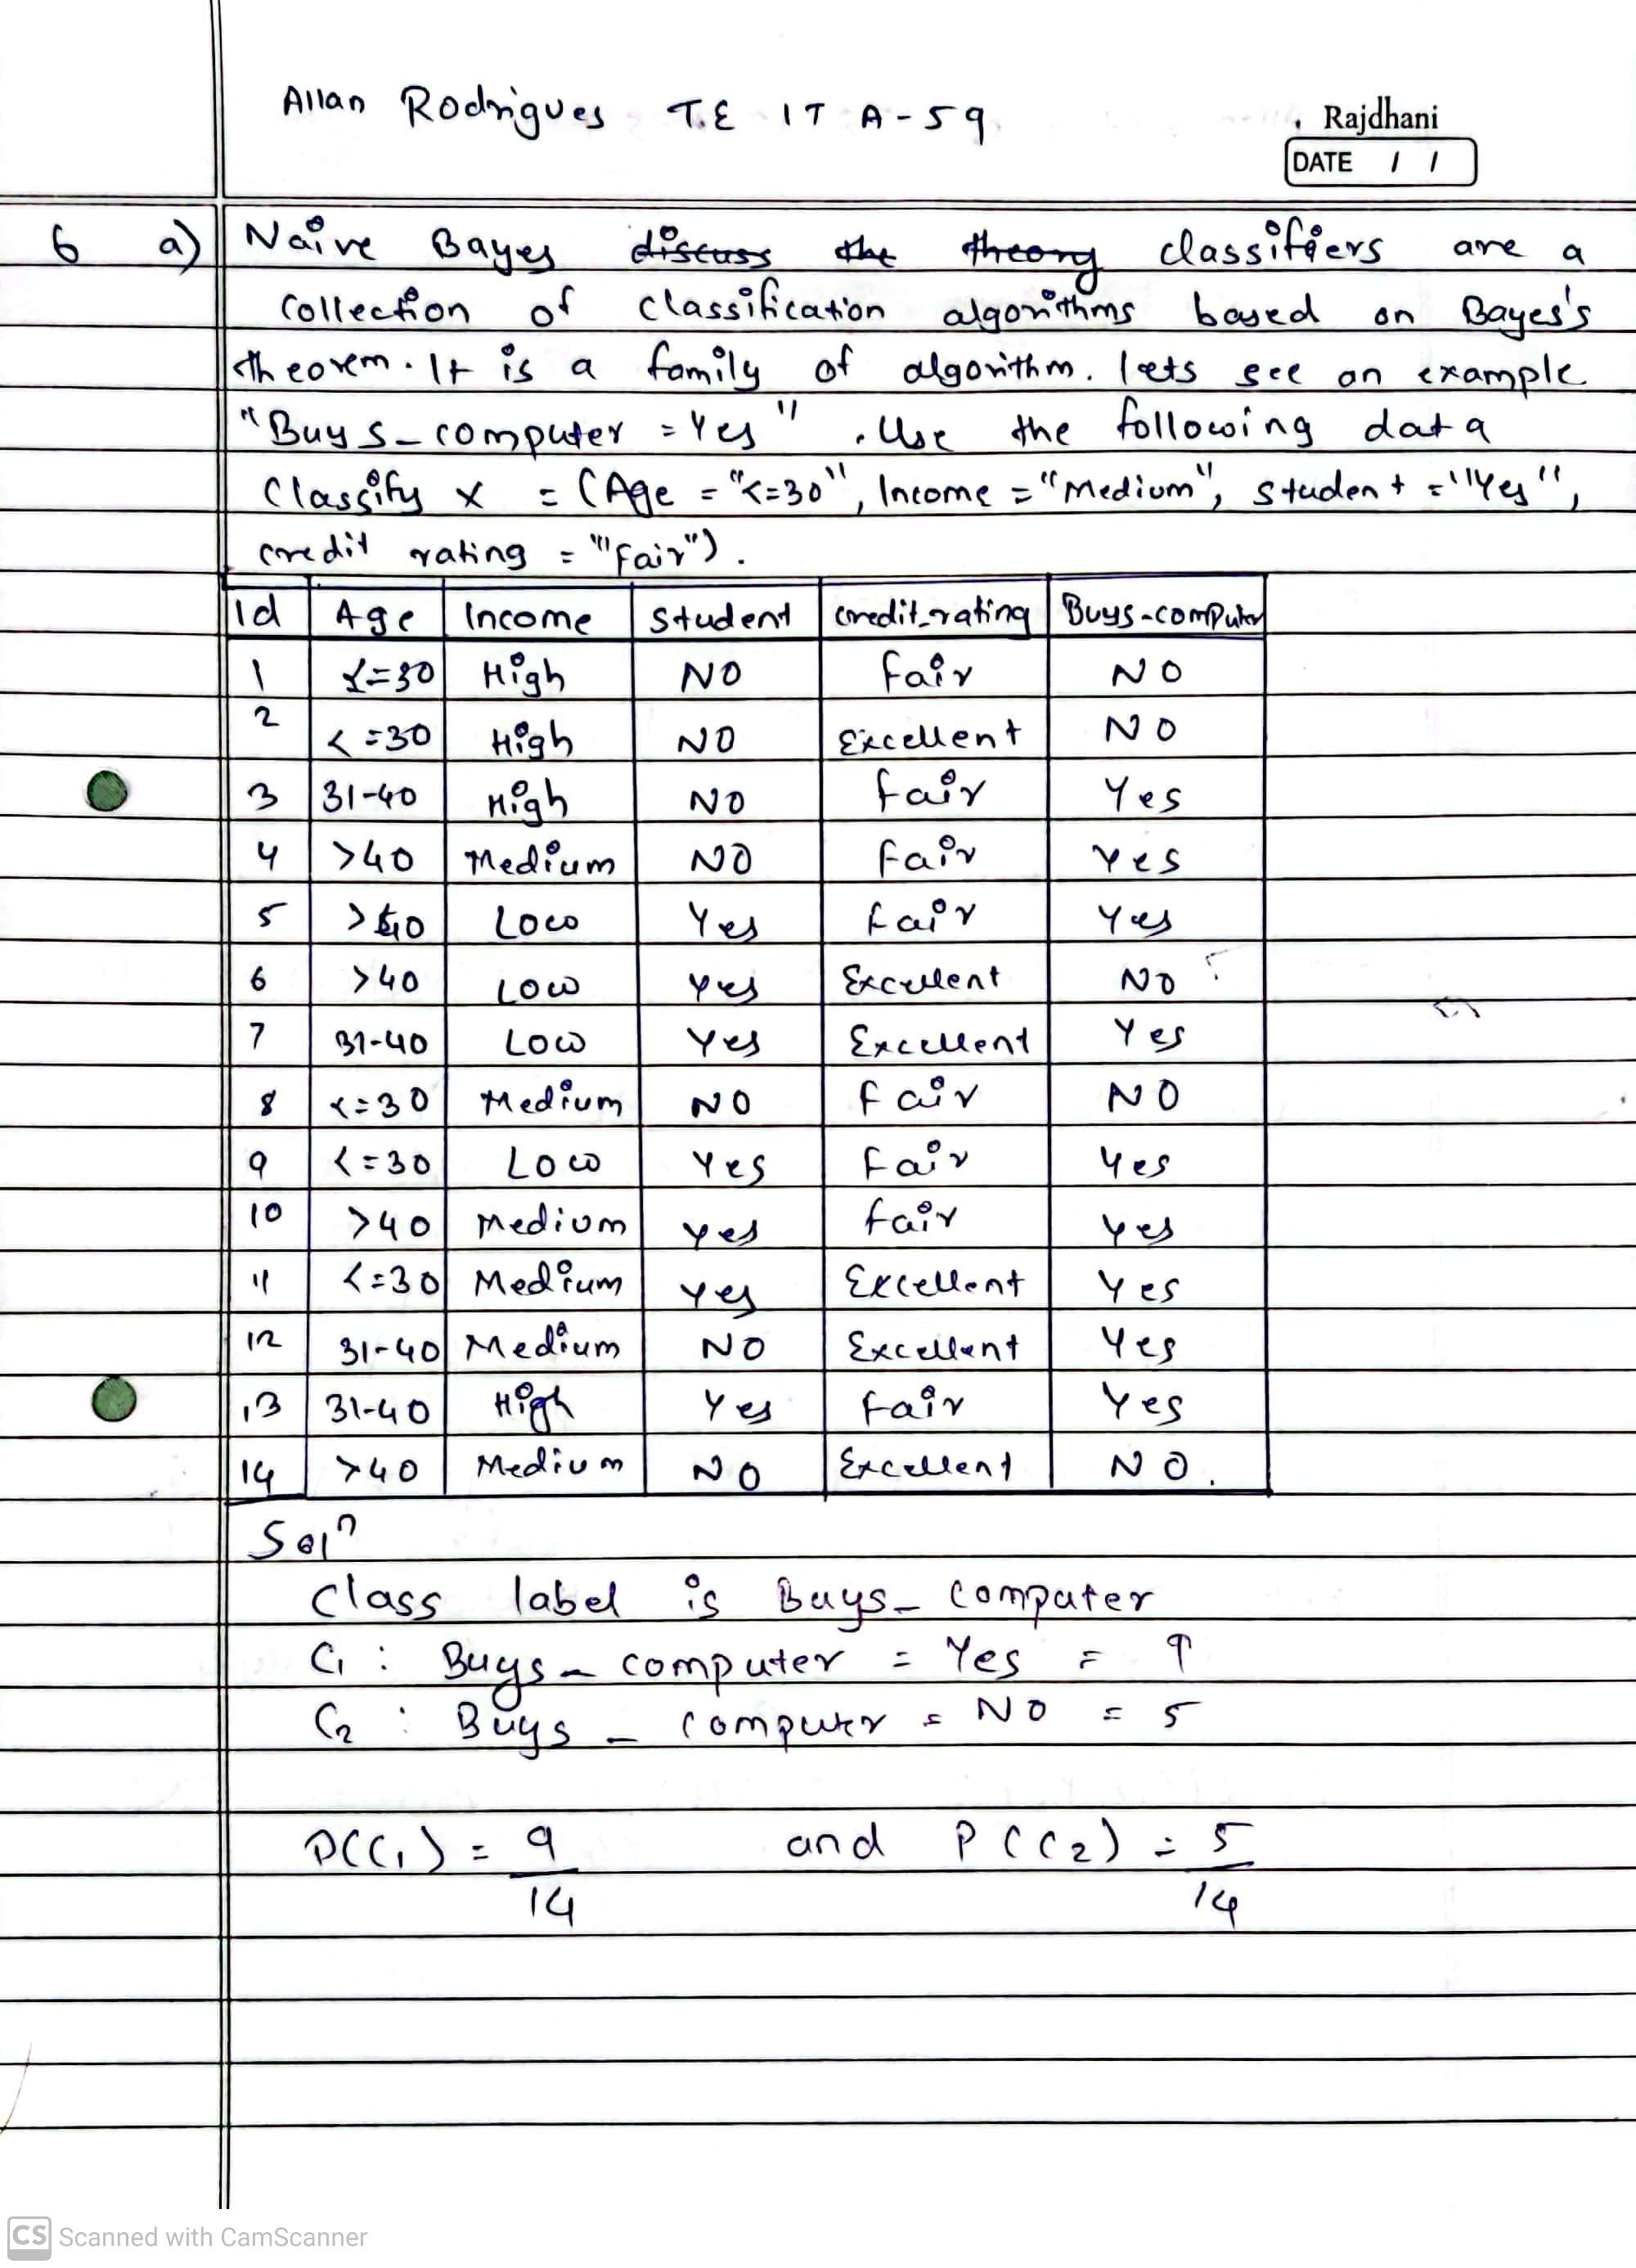 Allan Rodrigues T.E IT A-59
Rajdhani
DATE / /
6 a) Naive Bayes discuss the theory classifiers are a
collection of classification algorithms based on Bayes's
theorem. It is a family of algorithm. lets see an example
"Buys_computer = Yes". Use the following data
Classify x = (Age = "<=30", Income = "Medium", Student = "Yes",
credit rating = "Fair").
Id Age Income Student credit_rating Buys-computer
1 <=30 High NO fair NO
2 <=30 High NO Excellent NO
3 31-40 High NO fair Yes
4 >40 Medium NO fair Yes
5 >40 Low Yes fair Yes
6 >40 Low Yes Excellent NO
7 31-40 Low Yes Excellent Yes
8 <=30 Medium NO fair NO
9 <=30 Low Yes Fair Yes
10 >40 Medium Yes fair Yes
11 <=30 Medium Yes Excellent Yes
12 31-40 Medium NO Excellent Yes
13 31-40 High Yes fair Yes
14 >40 Medium NO Excellent NO.
Solⁿ
Class label is Buys_computer
C₁ : Buys_computer = Yes = 9
C₂ : Buys_computer = NO = 5
P(C₁) = 9/14 and P(C₂) = 5/14
CS Scanned with CamScanner